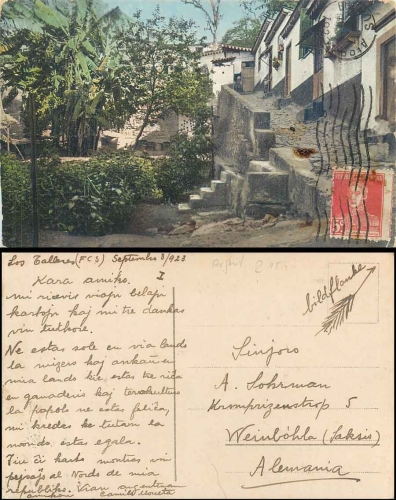 5
Los Talleres (FCS) Septembro 8/928
Kara amiko. I
mi ricevis viajn belajn
kartojn kaj mi tre dankas
vin tutkore.
Ne estas sole en via lando
la mizero kaj ankaŭ en
mia lando kie estas tre riĉa
en ganaderis kaj terakulturo
la popolo ne estas feliĉa,
mi kredes ke tutan la
mondo, estas egala.
Tiu ĉi karto montras vi
pejsaĵo al Nordo de mia
republiko. Vian argentina
amikon
bildflanke
Sinjoro
A. Sohrman
Kronprinzenstrp 5
Weinböhla (Saksio)
Alemania